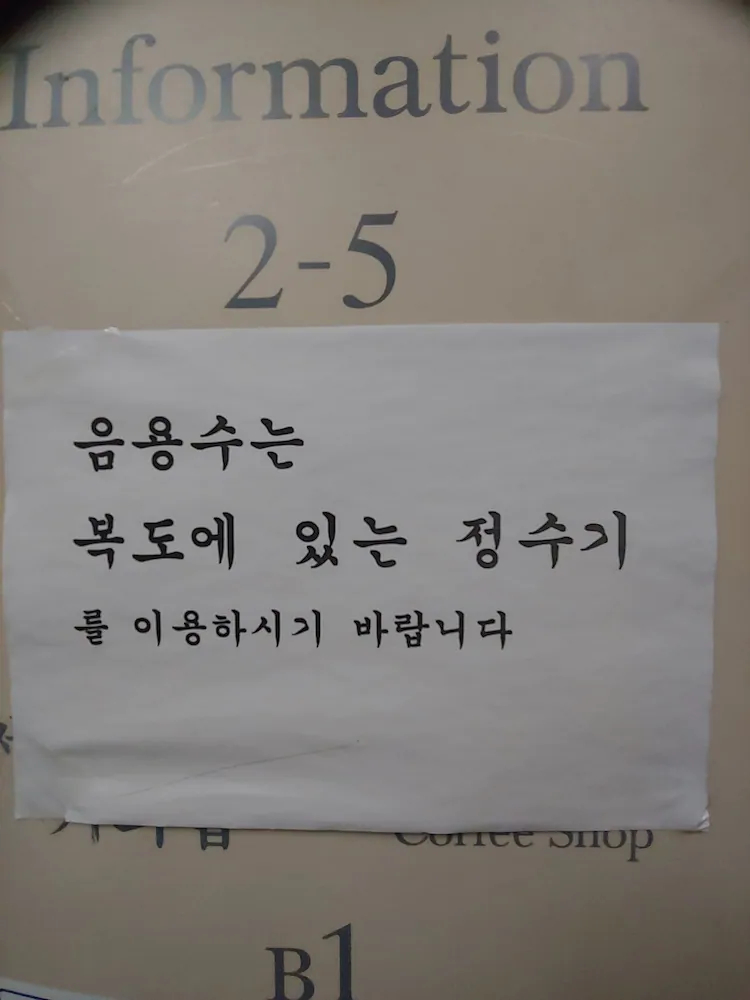 Information
2-5
음용수는
복도에 있는 정수기
를 이용하시기 바랍니다
Coffee Shop
B1